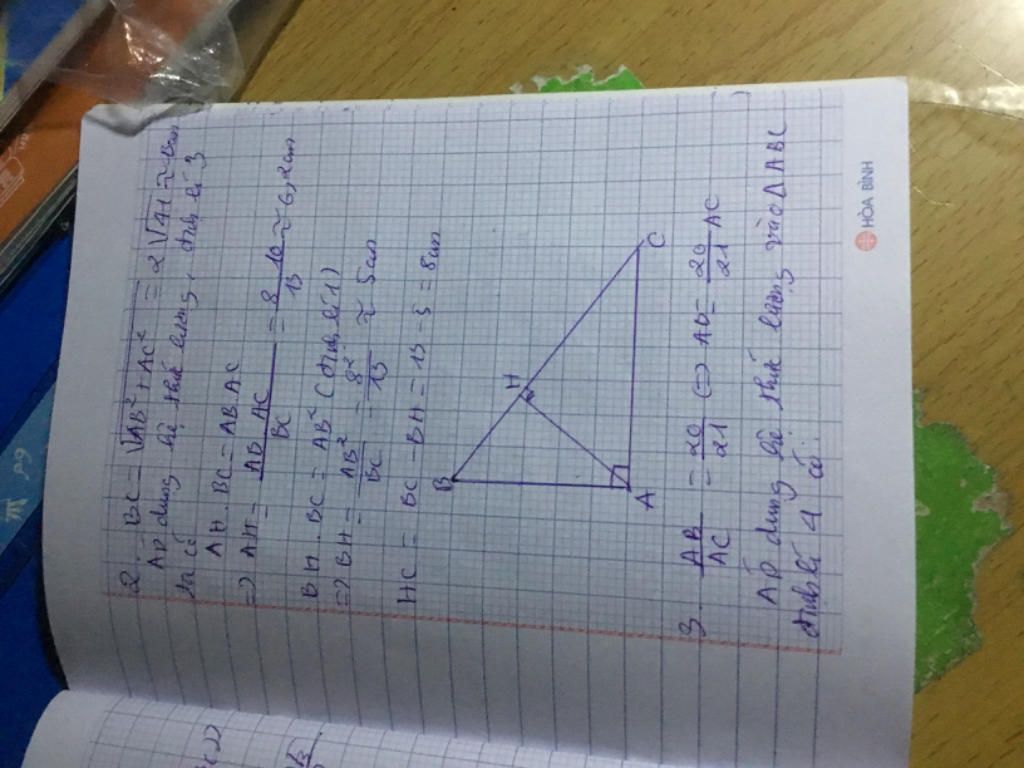 2. BC = √AB² + AC² = 2√41 ≈ 13cm
Áp dụng hệ thức lượng, định lí 3
ta có
AH . BC = AB . AC
=> AH = AB . AC / BC = 8 . 10 / 13 ≈ 6,2cm
BH . BC = AB² (định lí 1)
=> BH = AB² / BC = 8² / 13 ≈ 5cm
HC = BC - BH = 13 - 5 = 8cm
B
H
A
C
3. AB / AC = 20 / 21 <=> AB = 20 / 21 AC
Áp dụng hệ thức lượng vào Δ ABC
định lí 4 có:
HÒA BÌNH
π